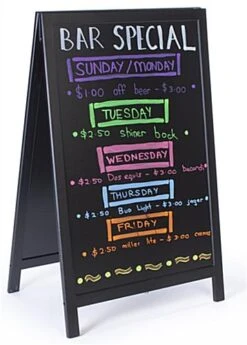 BAR SPECIAL
SUNDAY/MONDAY
• $1.00 off beer - $3.00 •
TUESDAY
• $2.50 shiner bock •
WEDNESDAY
• $2.50 Dos equis - $3.00 bacardi •
THURSDAY
• $2.50 Bud Light - $3.00 jager •
FRIDAY
• $2.50 miller lite - $3.00